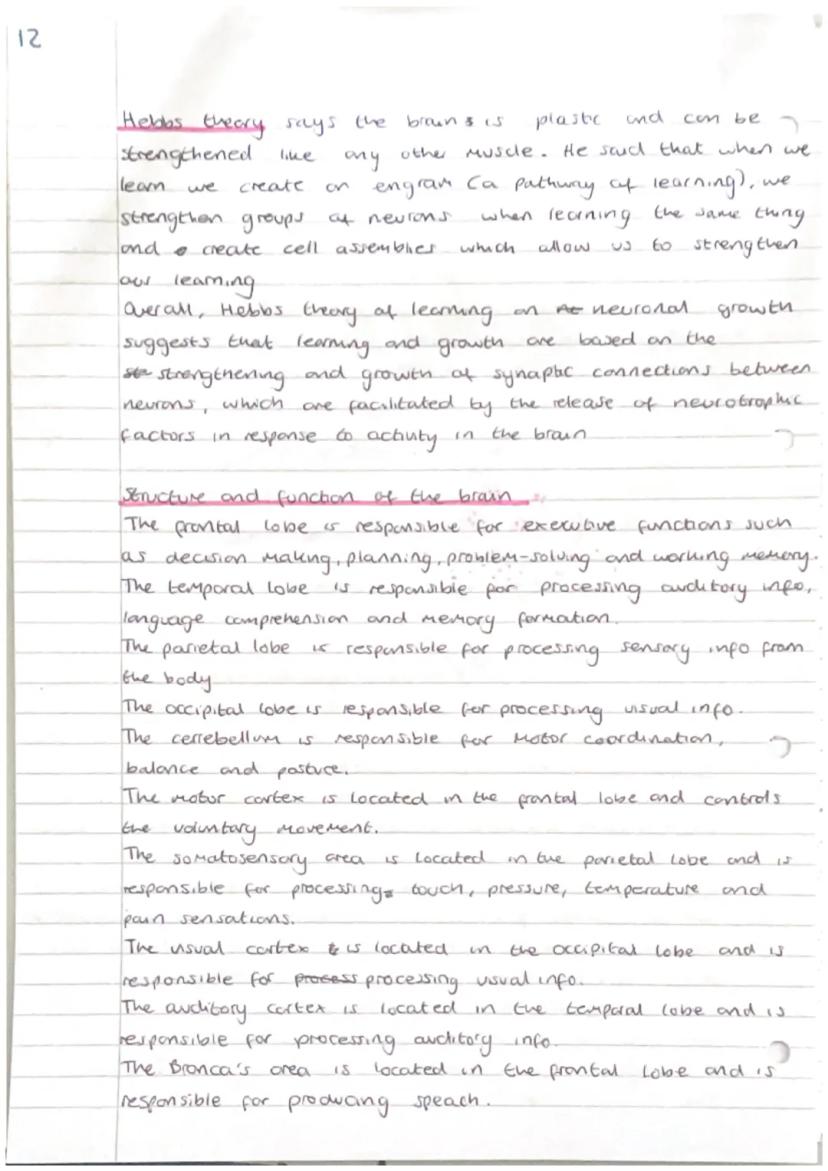 12
Hebbs theory says the brain is plastic and can be
strengthened like any other muscle. He said that when we
learn we create an engram (a pathway of learning), we
strengthen groups of neurons when learning the same thing
and create cell assemblies which allow us to strengthen
our learning
Overall, Hebbs theory of learning an neuronal growth
suggests that learning and growth are based on the
strengthening and growth of synaptic connections between
neurons, which are facilitated by the release of neurotrophic
factors in response to activity in the brain
Structure and function of the brain
The frontal lobe is responsible for executive functions such
as decision making, planning, problem-solving and working memory.
The temporal lobe is responsible for processing auditory info,
language comprehension and memory formation.
The parietal lobe is responsible for processing sensory info from
the body
The occipital lobe is responsible for processing visual info.
The cerrebellum is responsible for motor coordination,
balance and posture.
The motor cortex is located in the frontal lobe and controls
the voluntary movement.
The somatosensory area is located in the parietal lobe and is
responsible for processing touch, pressure, temperature and
pain sensations.
The visual cortex is located in the occipital lobe and is
responsible for process processing visual info.
The auditory cortex is located in the temporal lobe and is
responsible for processing auditory info.
The Bronca's area is located in the frontal lobe and is
responsible for producing speach.